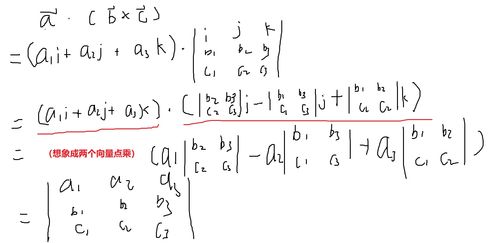 a⃗ · ( b⃗ × c⃗ )
= (a₁i + a₂j + a₃ k) · | i j k ; b₁ b₂ b₃ ; c₁ c₂ c₃ |
= (a₁i + a₂j + a₃k) · ( | b₂ b₃ ; c₂ c₃ | i - | b₁ b₃ ; c₁ c₃ | j + | b₁ b₂ ; c₂ c₂ | k )
= (想象成两个向量点乘) ( a₁ | b₂ b₃ ; c₂ c₃ | - a₂ | b₁ b₃ ; c₁ c₃ | + a₃ | b₁ b₂ ; c₁ c₂ | )
= | a₁ a₂ a₃ ; b₁ b₂ b₃ ; c₁ c₂ c₃ |